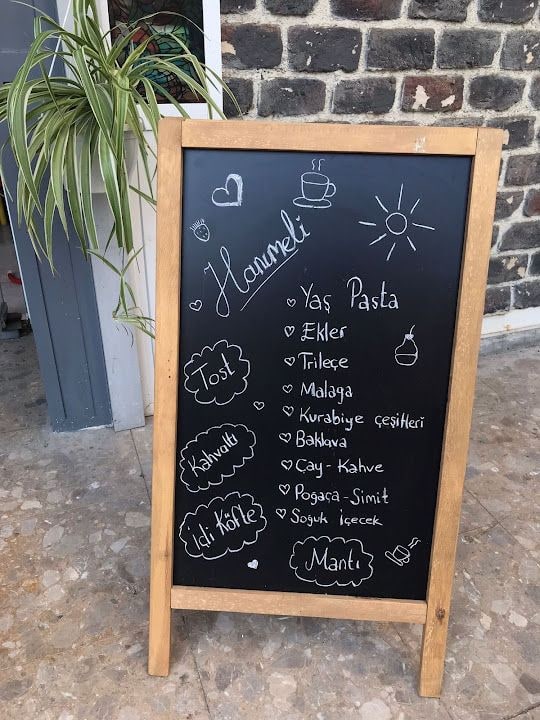 Hanımeli
Yaş Pasta
Ekler
Trileçe
Malaga
Kurabiye çeşitleri
Baklava
Çay-Kahve
Pogaça-Simit
Soğuk içecek
Tost
Kahvaltı
İçli Köfte
Mantı